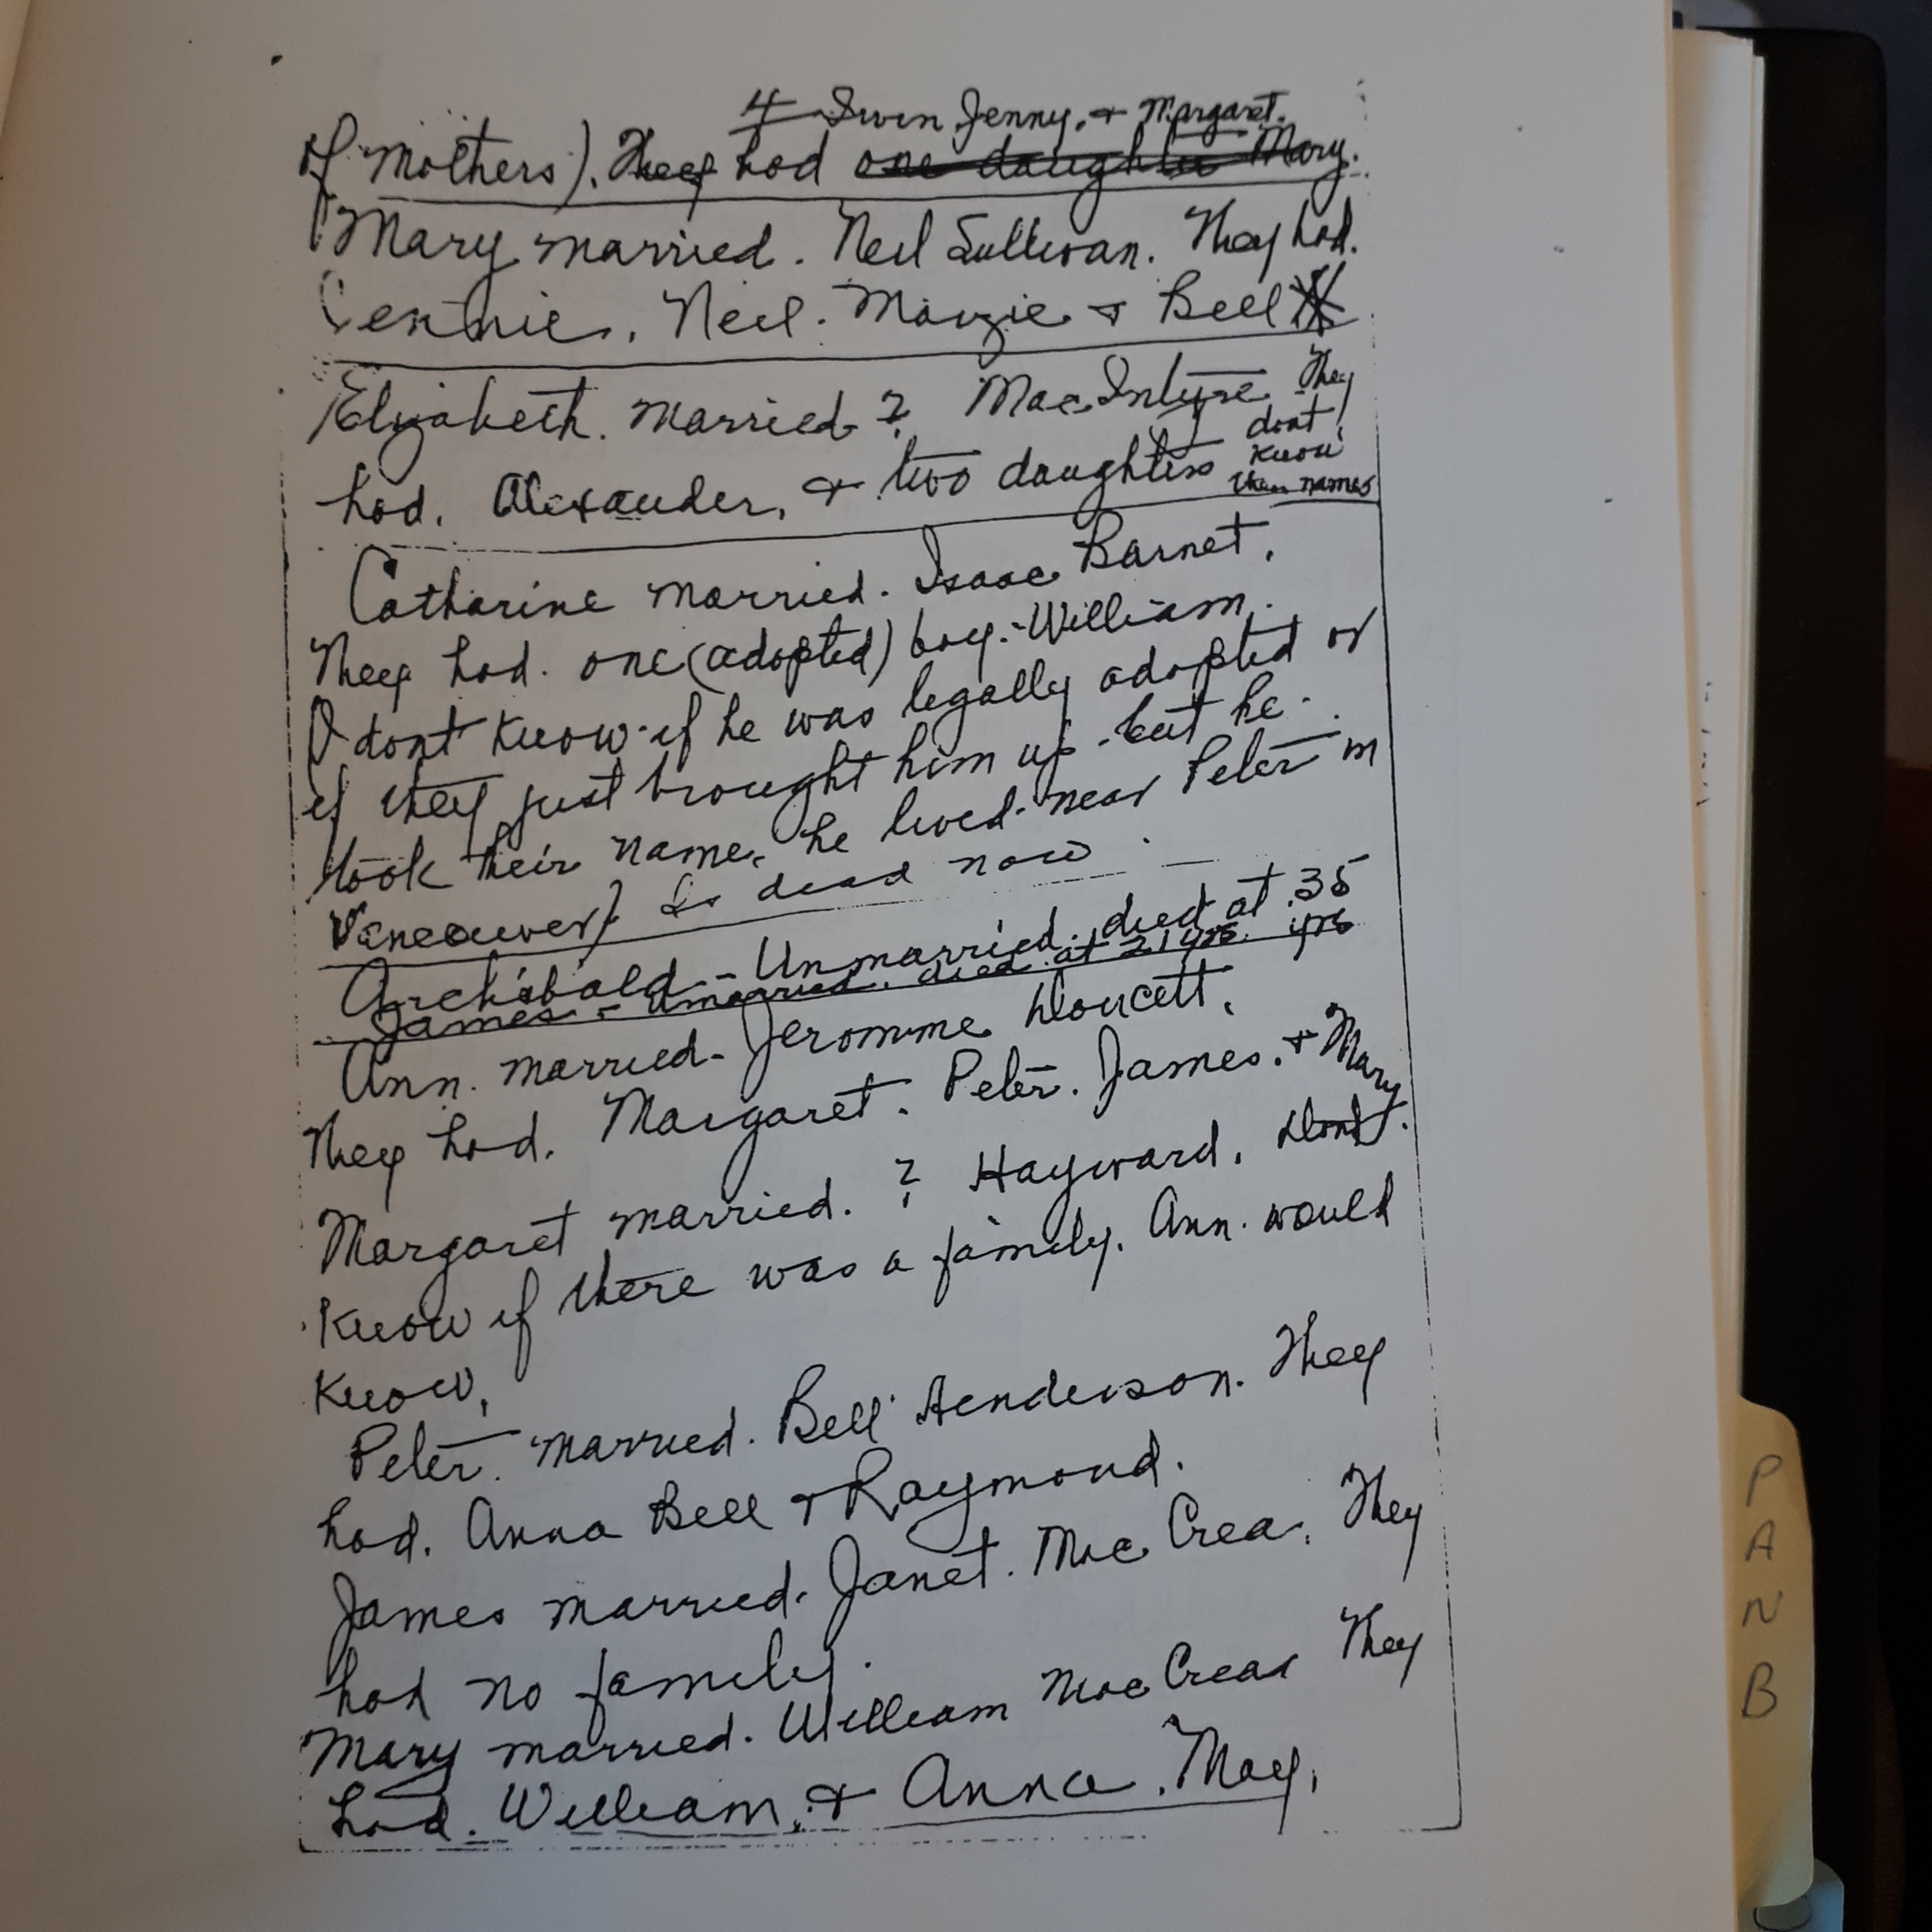 4 Jenny, + Margaret.
of mothers). They had one daughter Mary.
Mary married. Neil Sullivan. They had.
Neil. Maizie + Bell
Elizabeth. married ? Mac Intyre They
had. Alexander, + two daughters dont know their names
Catharine married. Isaac Barnet.
They had. one (adopted) boy. - William.
I dont know if he was legally adopted or
if they just brought him up - but he.
took their name, he lived near Peter in
Vancouver) Is dead now
Archibald - Unmarried. died at 35 yrs
James - Unmarried. died at 21 yrs.
Ann. married - Jeromme Doucett.
They had. Margaret. Peter. James. + Mary
Margaret married. ? Hayward. Dont.
Know if there was a family. Ann. would
Know.
Peter. married. Bell Henderson. They
had. Anna Bell + Raymond.
James married. Janet. Mac Crea. They
had no family.
Mary married. William Mac Crea They
had. William, + Anna. May.
P
A
N
B